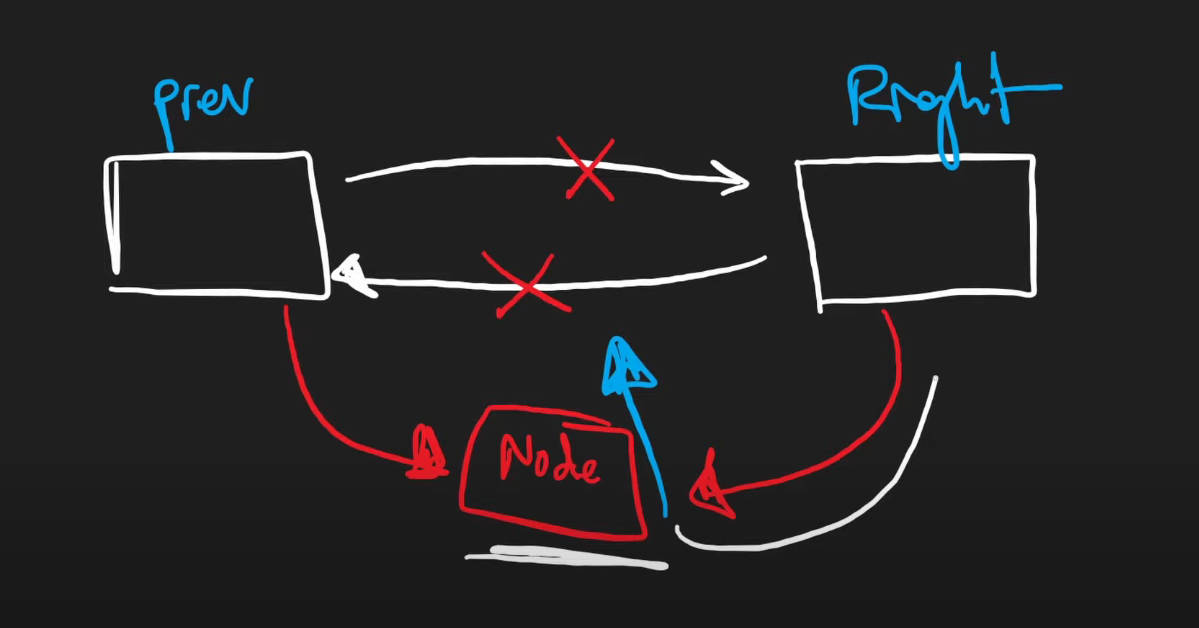 prev
Right
Node